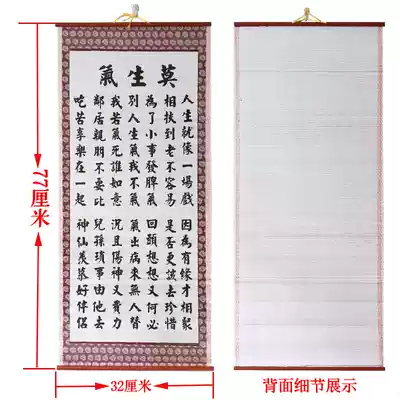 莫生氣
人生就像一場戲 因為有緣才相聚
相扶到老不容易 是否更該去珍惜
為了小事發脾氣 回頭想想又何必
別人生氣我不氣 氣出病來無人替
我若氣死誰如意 況且傷神又費力
鄰居親朋不要比 兒孫瑣事由他去
吃苦享樂在一起 神仙羨慕好伴侶
77厘米
32厘米
背面细节展示